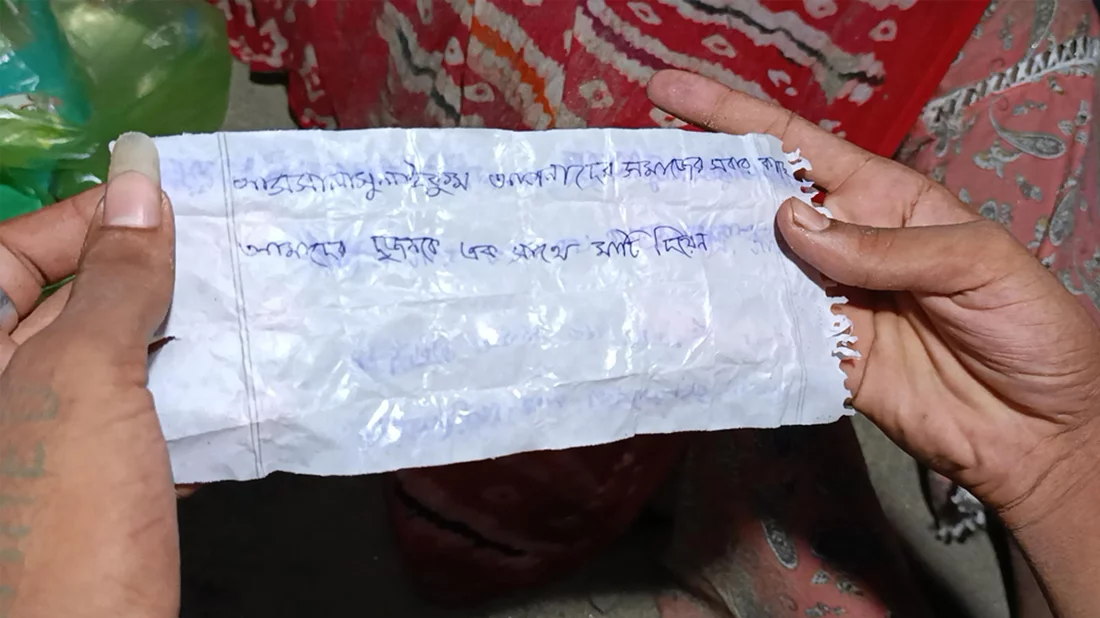 আাসসালামুলাইকুম আপনাদের সমাজের সবার কাছে
আমাদের দুজনকে এক সাথে মাটি দিয়েন